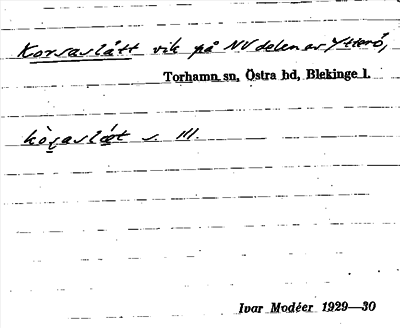 Korsaslätt vik på NV delen av Ytterö,
Torhamn sn, Östra hd, Blekinge l.
kòṣaslæ̀t s. III.
Ivar Modéer 1929—30